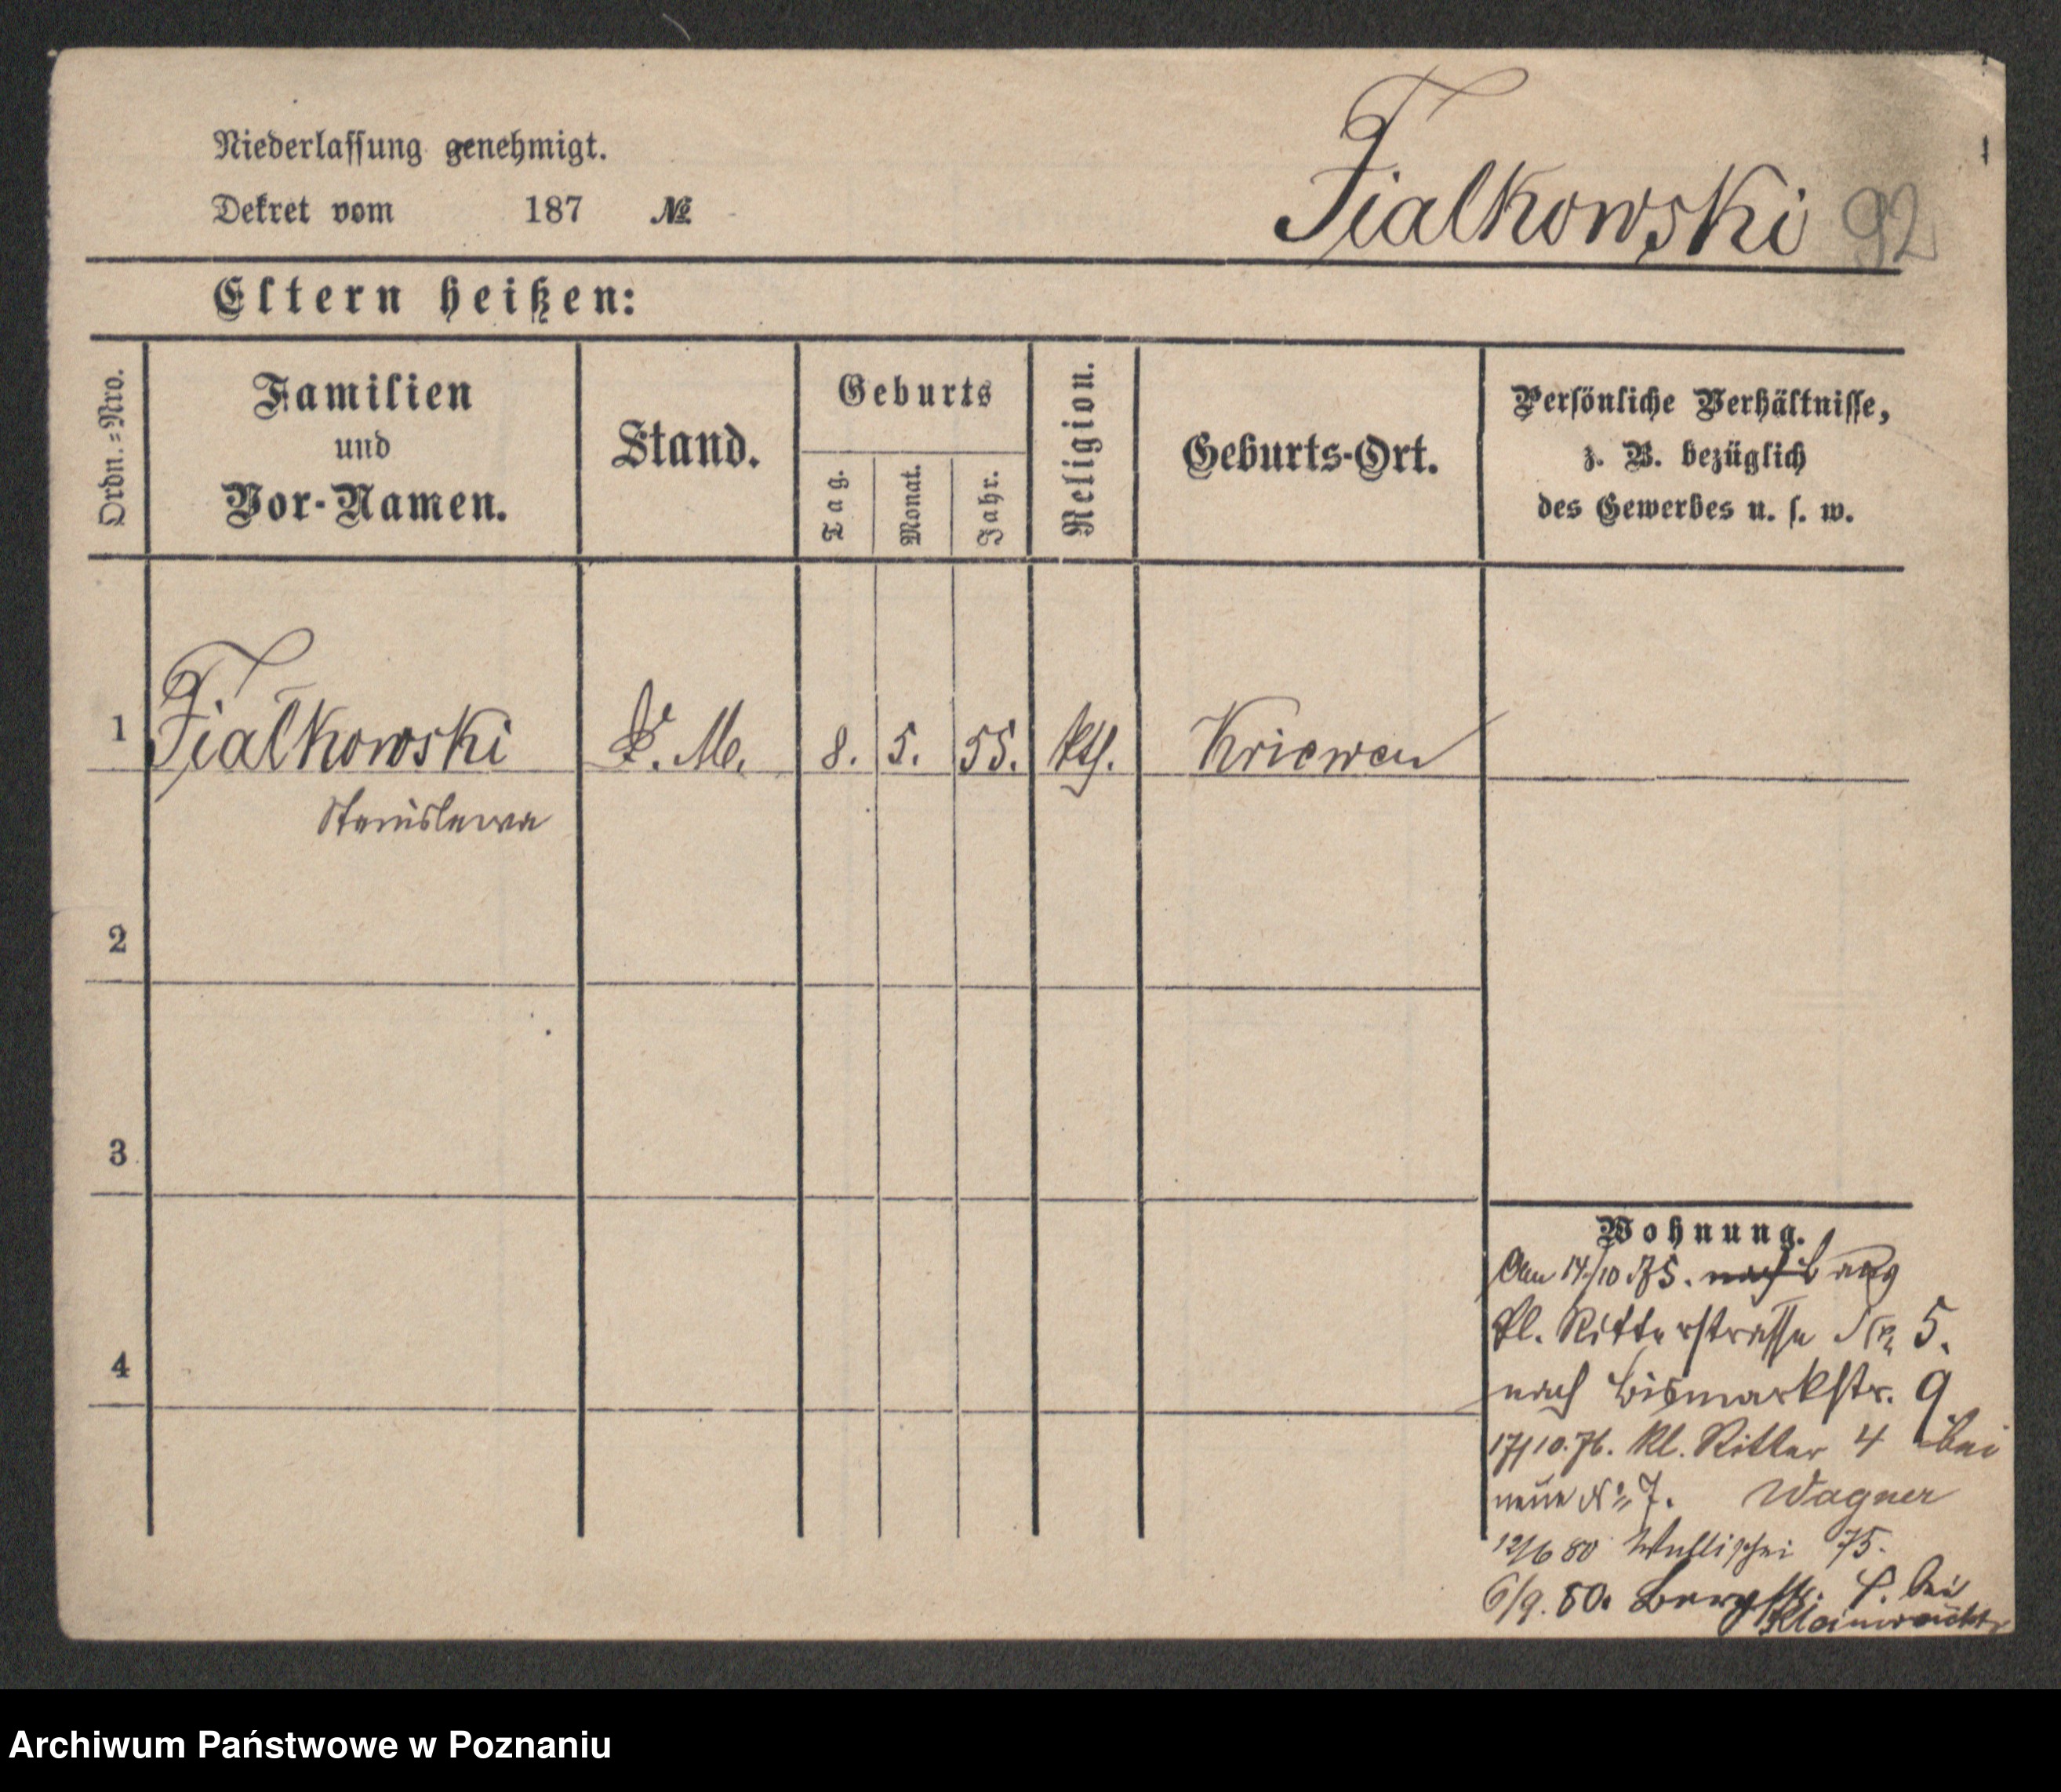 Niederlassung genehmigt.
Dekret vom 187 №
Fialkowski 92
Eltern heißen:
Ordn.=Nro.
Familien
und
Vor-Namen.
Stand.
Geburts
Tag.
Monat.
Jahr.
Religion.
Geburts-Ort.
Persönliche Verhältnisse,
z. B. bezüglich
des Gewerbes u. s. w.
1 Fialkowski 8. 5. 55. kth. Kriewen
Stanislawa
2
3
4
Wohnung.
Am 14/10 75. nach
kl. Ritterstrasse No 5.
nach Bismarkstr. 9
17/10.76. kl. Ritter 4 bei
neue No 7. Wagner
12/6 80 Wallischei 75.
6/9. 80. Bergstr. bei
Archiwum Państwowe w Poznaniu